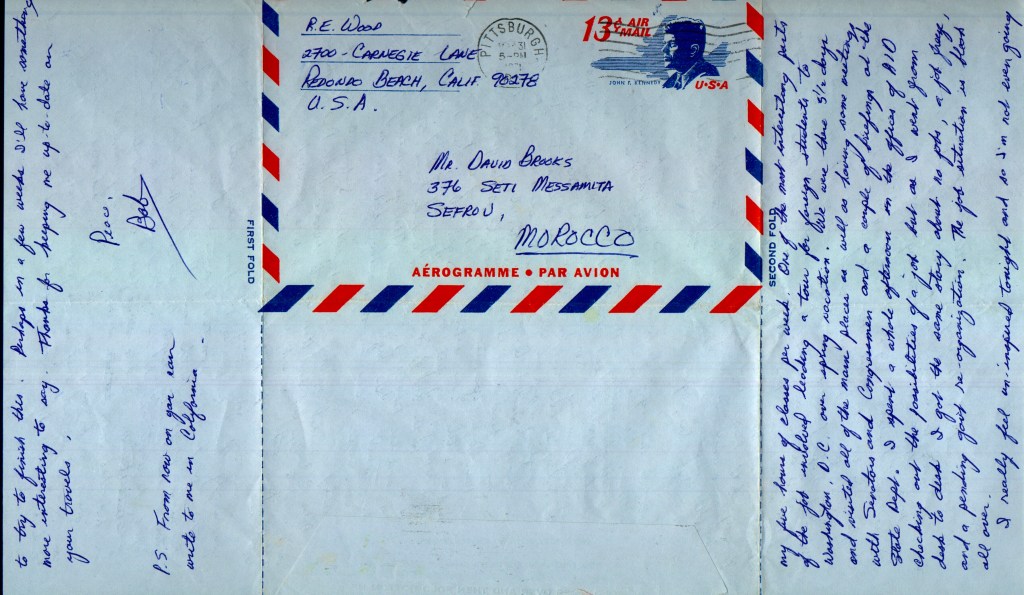 R.E. WOOD
2700 - CARNEGIE LANE
REDONDO BEACH, CALIF. 90278
U.S.A.
PITTSBURGH,
31
5-PM
13¢ AIR MAIL
JOHN F. KENNEDY
U·S·A
MR. DAVID BROOKS
376 SETI MESSAMITA
SEFROU,
MOROCCO
AÉROGRAMME • PAR AVION
FIRST FOLD
SECOND FOLD
my five hours of classes per week. One of the most interesting parts
of the job involved leading a tour for foreign students to
Washington, D.C. over spring vacation. We were there 5½ days
and visited all of the main places as well as having some meetings
with Senators and Congressmen and a couple of briefings at the
State Dept. I spent a whole afternoon in the offices of AID
checking out the possibilities of a job but as I went from
desk to desk I got the same story about no jobs, a job freeze,
and a pending gov't re-organization. The job situation is bleak
all over.
I really feel un-inspired tonight and so I'm not even going
to try to finish this. Perhaps in a few weeks I'll have something
more interesting to say. Thanks for keeping me up-to-date on
your travels,
Peace,
Bob
P.S. From now on you can
write to me in California.